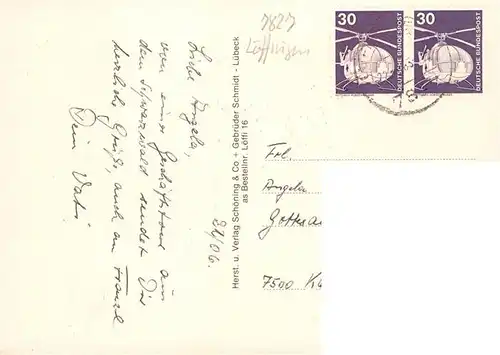 7827
Löffingen
30
DEUTSCHE BUNDESPOST
30
DEUTSCHE BUNDESPOST
Liebe Angela,
von einer Geschäftstour aus
dem Schwarzwald sendet Dir
herzliche Grüße, auch an
Dein Vati
22/06.
Herst. u. Verlag Schöning & Co + Gebrüder Schmidt - Lübeck
as Bestellnr. Löffi 16
Frl.
Angelia
7500